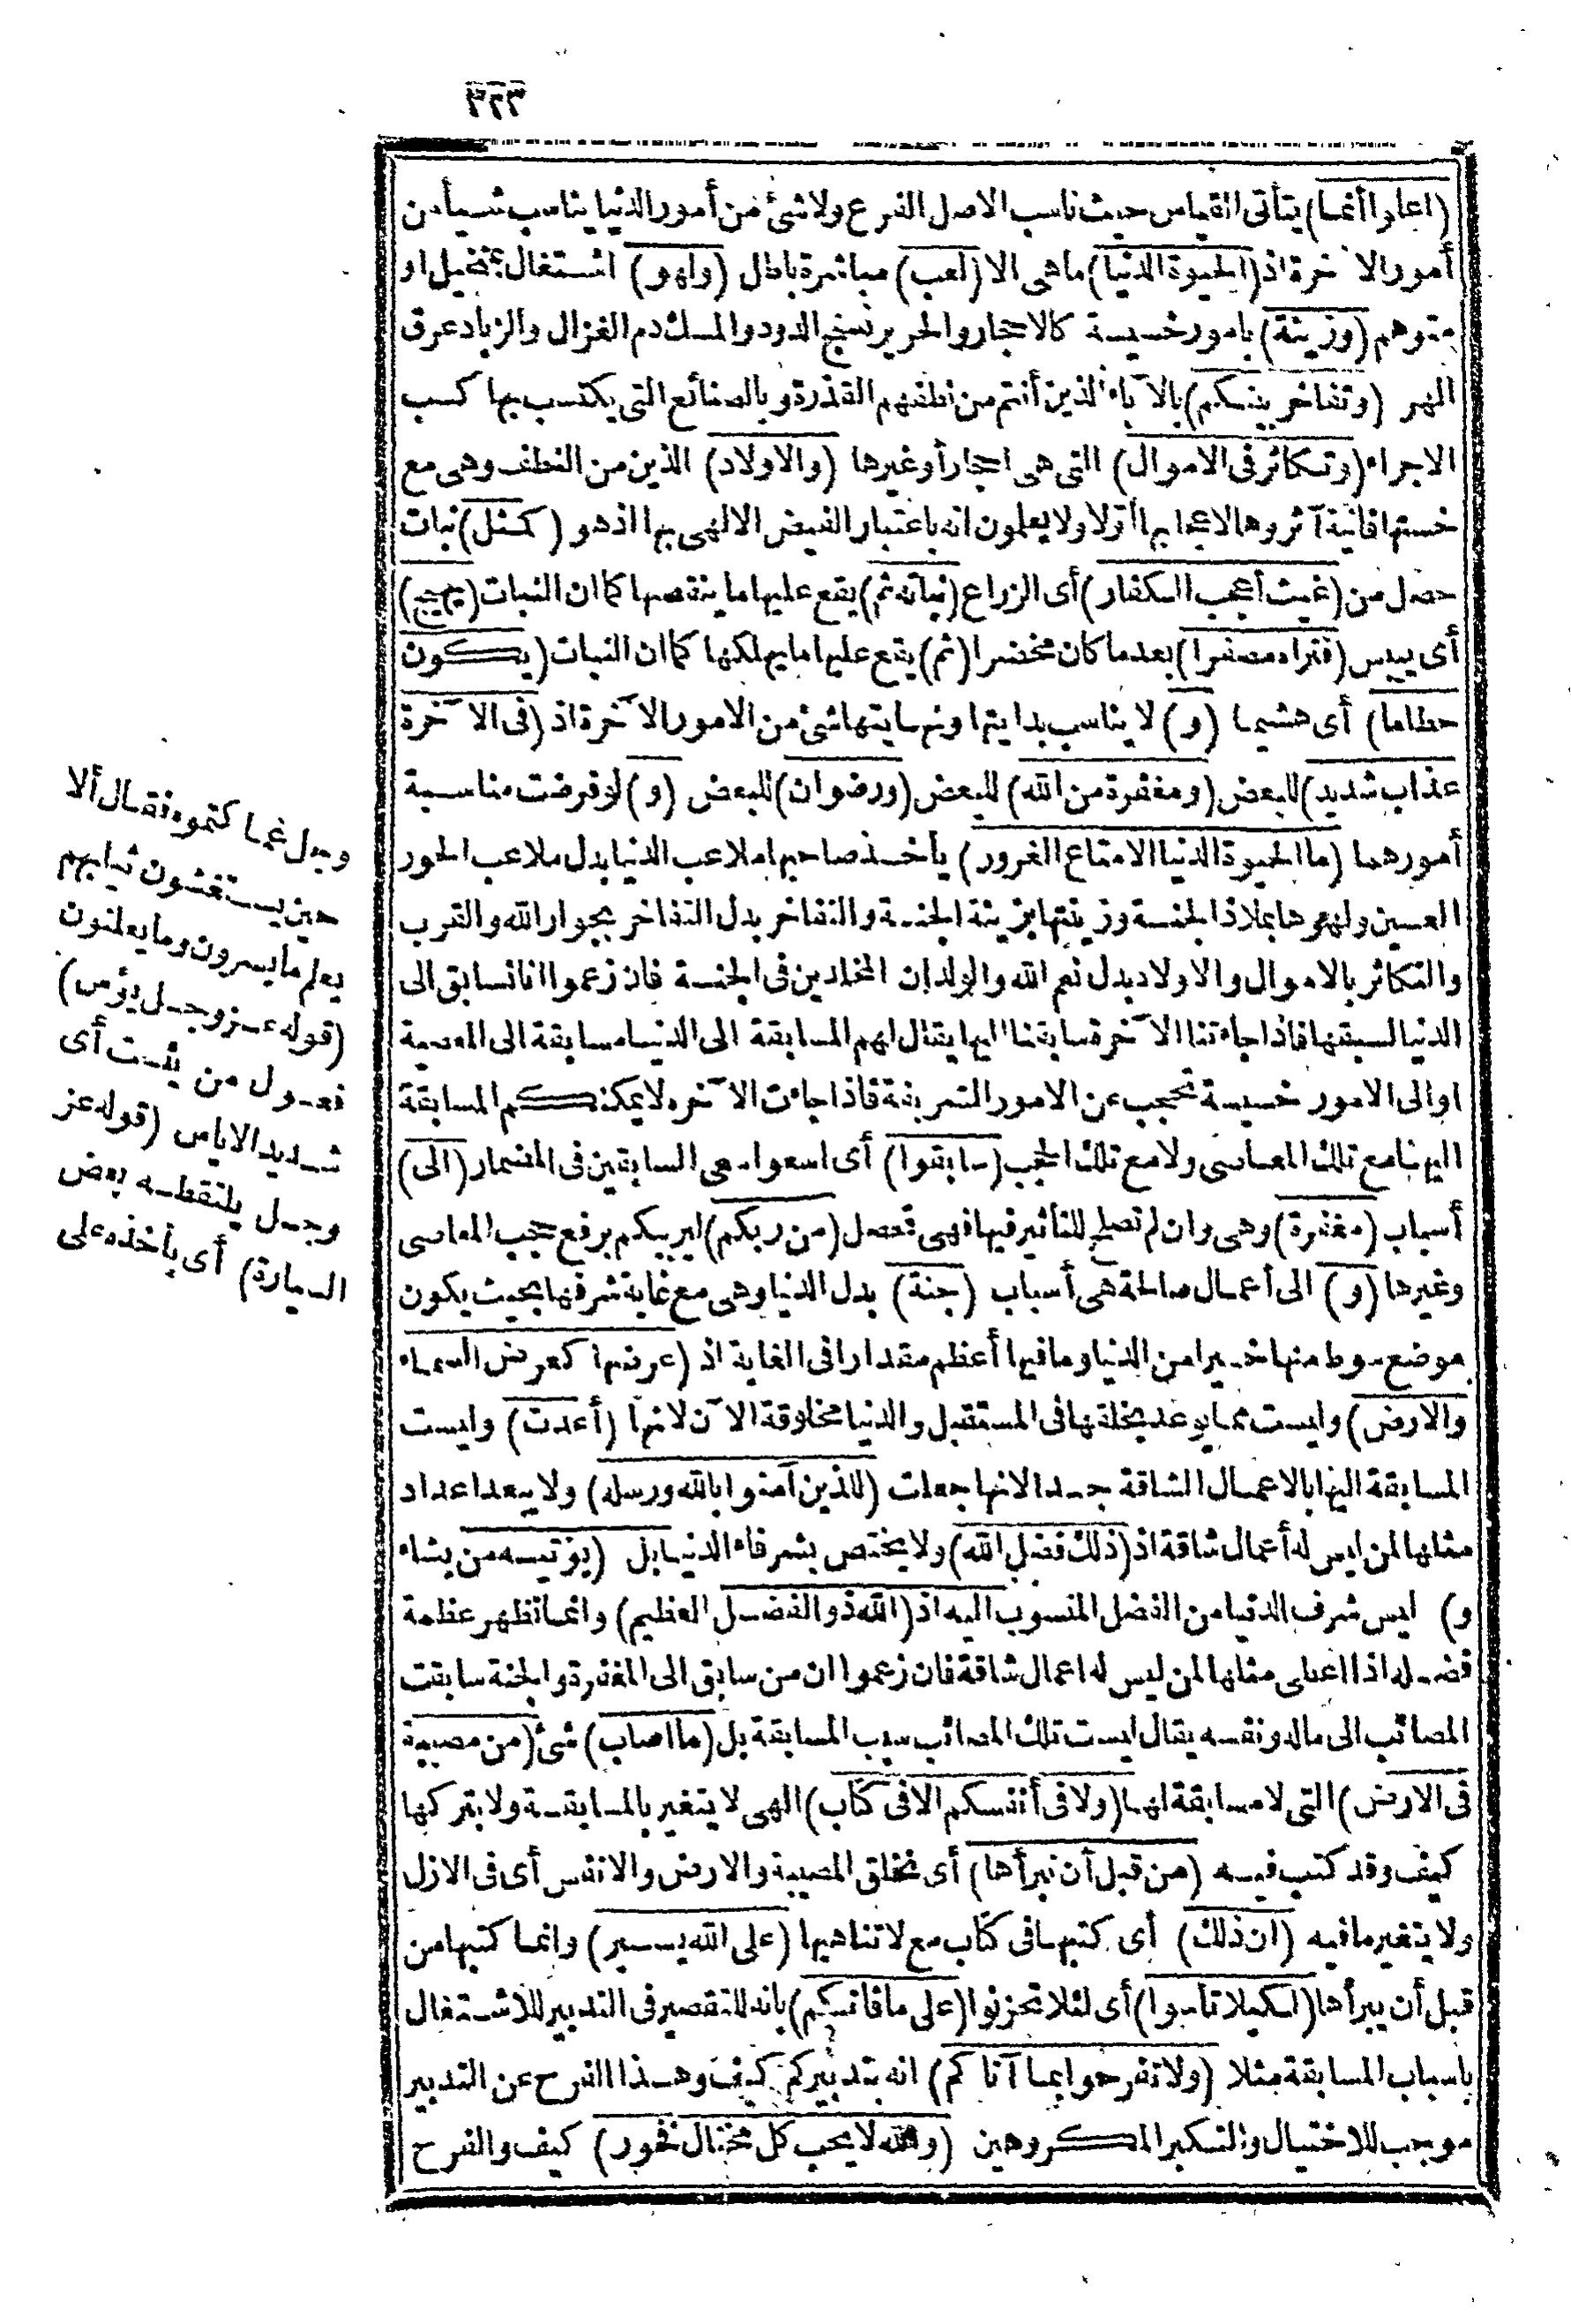 ٣٢٣
(اعلموا أنما) يتأتى القياس حيث ناسب الاصل الفرع ولا شئ من أمور الدنيا يناسب شيأ من
أمور الآخرة اذ (الحيوة الدنيا) ما هى الا (لعب) مباشرة باطل (ولهو) اشتغال بمخيل او
متوهم (وزينة) بامور خسيسة كالاحجار والحرير نسج الدود والمسك دم الغزال والزباد عرق
الهر (وتفاخر بينكم) بالآباء الذين أنتم من نطفهم القذرة وبالصنائع التى يكتسب بها كسب
الاجراء (وتكاثر فى الاموال) التى هى احجار أو غيرها (والاولاد) الذين من النطف وهى مع
خستها فانية آثروها لاعجابها أولا ولا يعلمون انه باعتبار الفيض الالهى بها اذ هو (كمثل) نبات
حصل من (غيث أعجب الكفار) أى الزراع (نباته ثم) يقع عليها ما ينقصها كما ان النبات (يهيج)
أى ييبس (فتراه مصفرا) بعد ما كان مخضرا (ثم) يقع عليها ما يهلكها كما ان النبات (يكون
حطاما) أى هشيما (و) لا يناسب بدايتها ونهايتها شئ من الامور الآخرة اذ (فى الآخرة
عذاب شديد) للبعض (ومغفرة من الله) للبعض (ورضوان) للبعض (و) لو فرضت مناسبة
أمورهما (ما الحيوة الدنيا الا متاع الغرور) يأخذ صاحبها ملاعب الدنيا بدل ملاعب الحور
العين ولهوها بملاذ الجنة وزينتها بزينة الجنة والتفاخر بدل التفاخر بجوار الله والقرب
والتكاثر بالاموال والاولاد بدل نعم الله والولدان المخلدين فى الجنة فان زعموا انا نسابق الى
الدنيا لسبقها فاذا جاءتنا الآخرة سابقنا اليها يقال لهم المسابقة الى الدنيا مسابقة الى المعصية
او الى الامور خسيسة تحجب عن الامور الشريفة فاذا جاءت الآخره لا يمكنكم المسابقة
اليها مع تلك المعاصى ولا مع تلك الحجب (سابقوا) أى اسعوا سعى السابقين فى المضمار (الى)
أسباب (مغفرة) وهى وان لم تصلح للتأثير فيها فهى تحصل (من ربكم) ليربيكم برفع حجب المعاصى
وغيرها (و) الى أعمال صالحة هى أسباب (جنة) بدل الدنيا وهى مع غاية شرفها بحيث يكون
موضع سوط منها خيرا من الدنيا وما فيها أعظم مقدارا فى الغاية اذ (عرضها كعرض السماء
والارض) وليست مما يوعد بخلقها فى المستقبل والدنيا مخلوقة الآن لانها (أعدت) وليست
المسابقة اليها بالاعمال الشاقة جدا لانها جعلت (للذين آمنوا بالله ورسله) ولا يبعد اعداد
مثلها لمن ليس له أعمال شاقة اذ (ذلك فضل الله) ولا يختص بشرفاء الدنيا بل (يؤتيه من يشاء
و) ليس شرف الدنيا من الفضل المنسوب اليه اذ (الله ذو الفضل العظيم) وانما تظهر عظمة
فضله اذا اعطى مثلها لمن ليس له اعمال شاقة فان زعموا ان من سابق الى المغفرة والجنة سابقت
المصائب الى ماله ونفسه يقال ليست تلك المصائب سبب المسابقة بل (ما اصاب) شئ (من مصيبة
فى الارض) التى لا مسابقة لها (ولا فى أنفسكم الا فى كتاب) الهى لا يتغير بالمسابقة ولا بتركها
كيف وقد كتب فيه (من قبل أن نبرأها) أى نخلق المصيبة والارض والانفس أى فى الازل
ولا يتغير ما فيه (ان ذلك) أى كتبها فى كتاب مع لا تناهيها (على الله يسير) وانما كتبها من
قبل أن يبرأها (لكيلا تأسوا) أى لئلا تحزنوا (على ما فاتكم) بانه للتقصير فى التدبير للاشتغال
باسباب المسابقة مثلا (ولا تفرحوا بما آتاكم) انه بتدبيركم كيف وهذا الفرح عن التدبير
موجب للاختيال والتكبر المكروهين (والله لا يحب كل مختال فخور) كيف والفرح
وجل غما كتموه فقال ألا
حين يستغشون ثيابهم
يعلم ما يسرون وما يعلنون
(قوله عز وجل يؤس)
فعول من يئست أى
شديد الاياس (قوله عز
وجل يلتقطه بعض
السيارة) أى يأخذه على